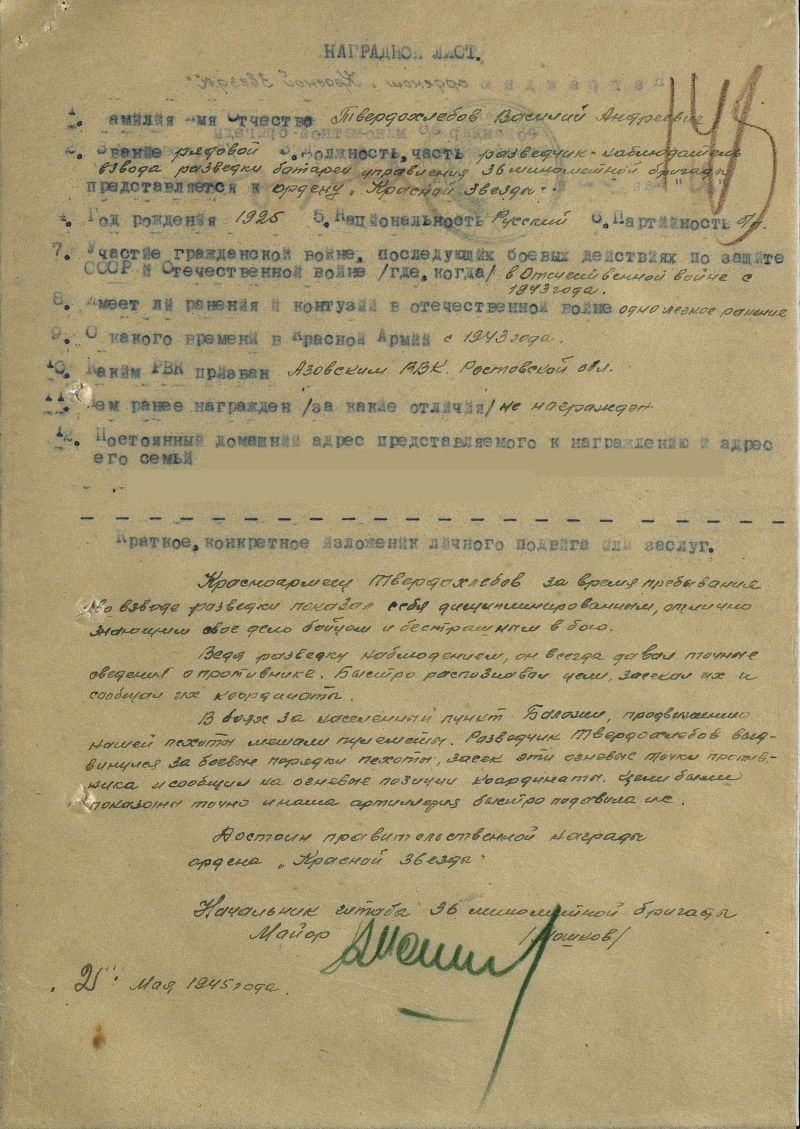 НАГРАДНОЙ ЛИСТ.
145
1. амилия мя Отчество Твердохлебов Василий Андреевич
2. Звание рядовой 3. Должность, часть разведчик-наблюдатель
взвода разведки батареи управления 36 миномётной бригады
представляется к ордену „Красной Звезды"
4. Год рождения 1925 5. Национальность Русский 6. Партийность б/п.
7. Участие гражданской войне, последующих боевых действиях по защите
СССР и Отечественной войне /где, когда/ в Отечественной войне с
1943 года.
8. Имеет ли ранения и контузии в отечественной войне одно легкое ранение
9. С какого времени в Красной Армии с 1943 года.
10. Каким РВК призван Азовским РВК. Ростовской обл.
11. ем ранее награжден /за какие отличия/ не награжден
12. Постоянный домашний адрес представляемого к награждению и адрес
его семьи
Краткое, конкретное изложеник личного подвига или заслуг.
Красноармеец Твердохлебов за время пребывания
во взводе разведки показал себя дисциплинированным, отлично
знающим свое дело бойцом и бесстрашным в бою.
Ведя разведку наблюдением, он всегда давал точные
сведения о противнике. Быстро распознавал цели, засекал их и
сообщал их координаты.
В боях за населенный пункт продвижению
нашей пехоты мешали пулеметы. Разведчик Твердохлебов выд-
винулся за боевые порядки пехоты, засек эти огневые точки против-
ника и сообщил на огневые позиции координаты. Цели были
показаны точно и наша артиллерия быстро подавила их.
Достоин правительственной награды
ордена „Красной Звезды"
Начальник штаба 36 миномётной бригады
Майор /Мошков/
„21" Мая 1945 года.